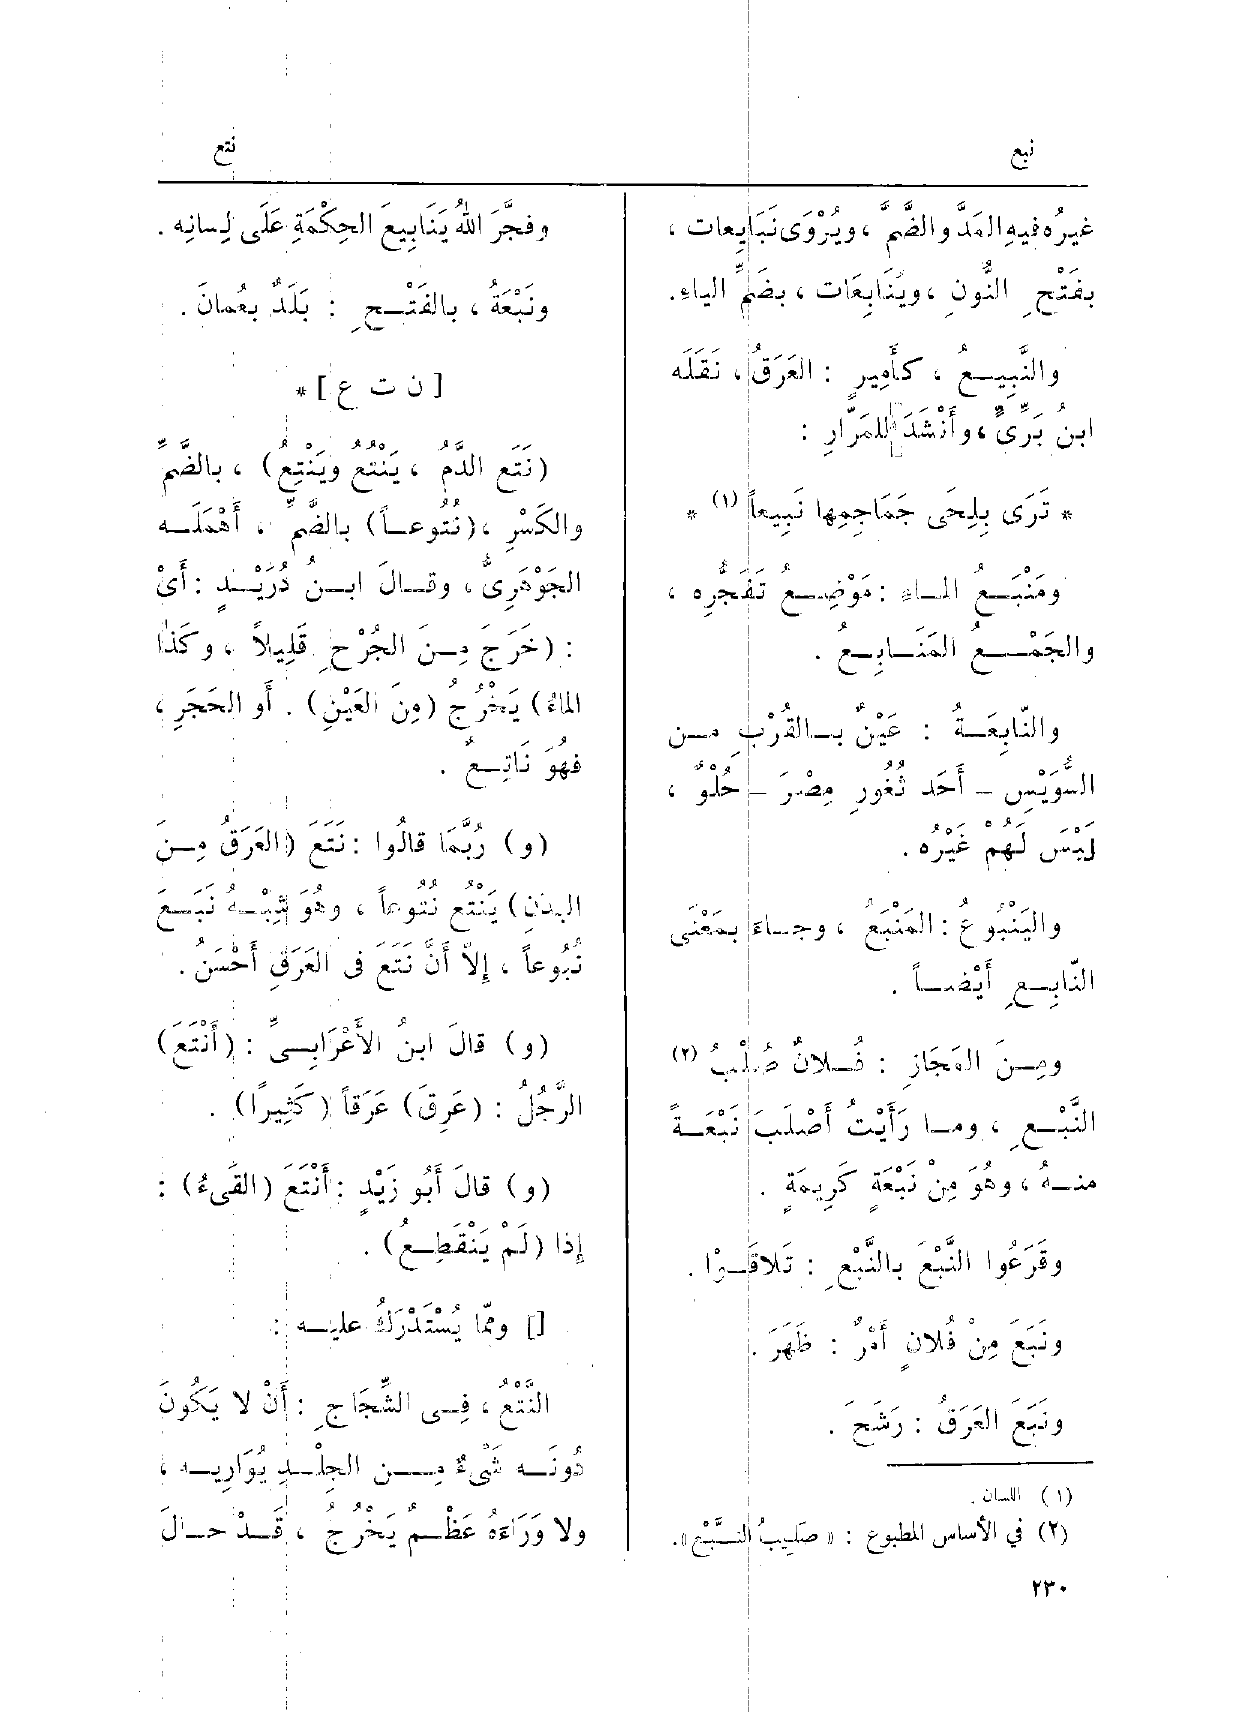 نبع
نتع
غيرُه فيهِ المَدَّ والضَّمَّ ، ويُرْوَى نَبَايِعات ،
بفَتْحِ النُّونِ ، ويَنَابِعَات ، بضَمِّ الياءِ .
والنَّبِيــعُ ، كأَمِيرٍ : العَرَقُ ، نَقَلَه
ابنُ بَرِّىٍّ ، وأَنْشَدَ للمَرَّارِ :
* تَرَى بِلِحَى جَمَاجِمِها نَبِيعاً (١) *
ومَنْبَــعُ المــاءِ : مَوْضِــعُ تَفَجُّرِه ،
والجَمْــــعُ المَنَــابِــعُ .
والنّابِعَــةُ : عَيْنٌ بــالقُرْبِ مــن
السُّوَيْسِ – أَحَد ثُغُورِ مِصْرَ – حُلْوٌ ،
لَيْسَ لَهُمْ غَيْرُه .
واليَنْبُوعُ : المَنْبَعُ ، وجــاءَ بمَعْنَى
النّابِــعِ أَيْضــاً .
ومِــنَ المَجَازِ : فُــلانٌ صُلْبُ (٢)
النَّبْــعِ ، ومــا رَأَيْتُ أَصْلَبَ نَبْعَــةً
منــهُ ، وهُوَ مِنْ نَبْعَةٍ كَرِيمَةٍ .
وقَرَعُوا النَّبْعَ بالنَّبْعِ : تَلاقَــوْا .
ونَبَعَ مِنْ فُلانٍ أَمْرٌ : ظَهَرَ .
ونَبَعَ العَرَقُ : رَشَحَ .
(١) اللسان .
(٢) في الأساس المطبوع : « صَلِيبُ النَّــبْعِ ».
وفَجَّرَ اللهُ يَنَابِيعَ الحِكْمَةِ عَلَى لِسانِه .
ونَبْعَةُ ، بالفَتْــحِ : بَلَدٌ بعُمانَ .
[ ن ت ع ] *
(نَتَع الدَّمُ ، يَنْتُع ويَنْتِعُ) ، بالضَّمِّ
والكَسْرِ ، (نُتُوعــاً) بالضَّمِّ ، أَهْمَلَــه
الجَوْهَرِىُّ ، وقــالَ ابــنُ دُرَيْــدٍ : أَىْ
: (خَرَجَ مِــنَ الجُرْحِ قَلِيلاً ، وكَذا
الماءُ) يَخْرُجُ (مِنَ العَيْنِ) . أو الحَجَرِ ،
فهُوَ نَاتِــعٌ .
(و) رُبَّمَا قالُوا : نَتَعَ (العَرَقُ مِــنَ
البدَنِ) يَنْتُع نُتُوعاً ، وهُوَ شِبْــهُ نَبَــعَ
نُبُوعاً ، إلاّ أَنَّ نَتَعَ فى العَرَقِ أَحْسَنُ .
(و) قالَ ابنُ الأَعْرَابِــىِّ : (أَنْتَعَ)
الرَّجُلُ : (عَرِقَ) عَرَقاً (كَثِيرًا) .
(و) قالَ أَبُو زَيْدٍ : أَنْتَعَ (القَىءُ) :
إذا (لَمْ يَنْقَطِــعُ) .
[] وممّا يُسْتَدْرَكُ عليــه :
النَّتْعُ ، فِــى الشِّجَاجِ : أَنْ لا يَكُونَ
دُونَــه شَىْءٌ مِــــن الجِلْــدِ يُوَارِيــه ،
ولا وَرَاءَهُ عَظْــمٌ يَخْرُجُ ، قَــدْ حــالَ
٢٣٠